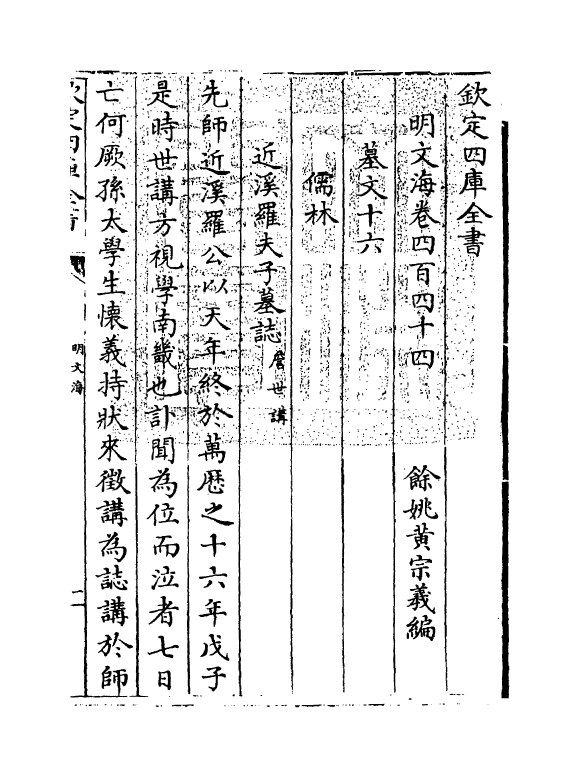 欽定四庫全書
明文海卷四百四十四　餘姚黃宗羲編
墓文十六
儒林
近溪羅夫子墓誌　詹世講
先師近溪羅公以天年終於萬歷之十六年戊子
是時世講方視學南畿也訃聞為位而泣者七日
亡何厥孫太學生懷義持狀來徵講為誌講於師
欽定四庫全書
明文海
一